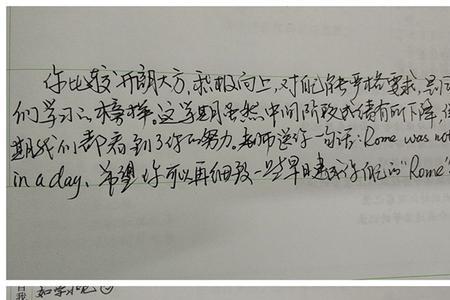 你比较开朗大方,积极向上,对自己能严格要求,是
们学习的榜样。这学期虽然中间阶段成绩有所下降,
期我们都看到了你的努力。老师送你一句话:Rome was not
in a day. 希望你可以再细致一些早日建成你自己的"Rome"
自我